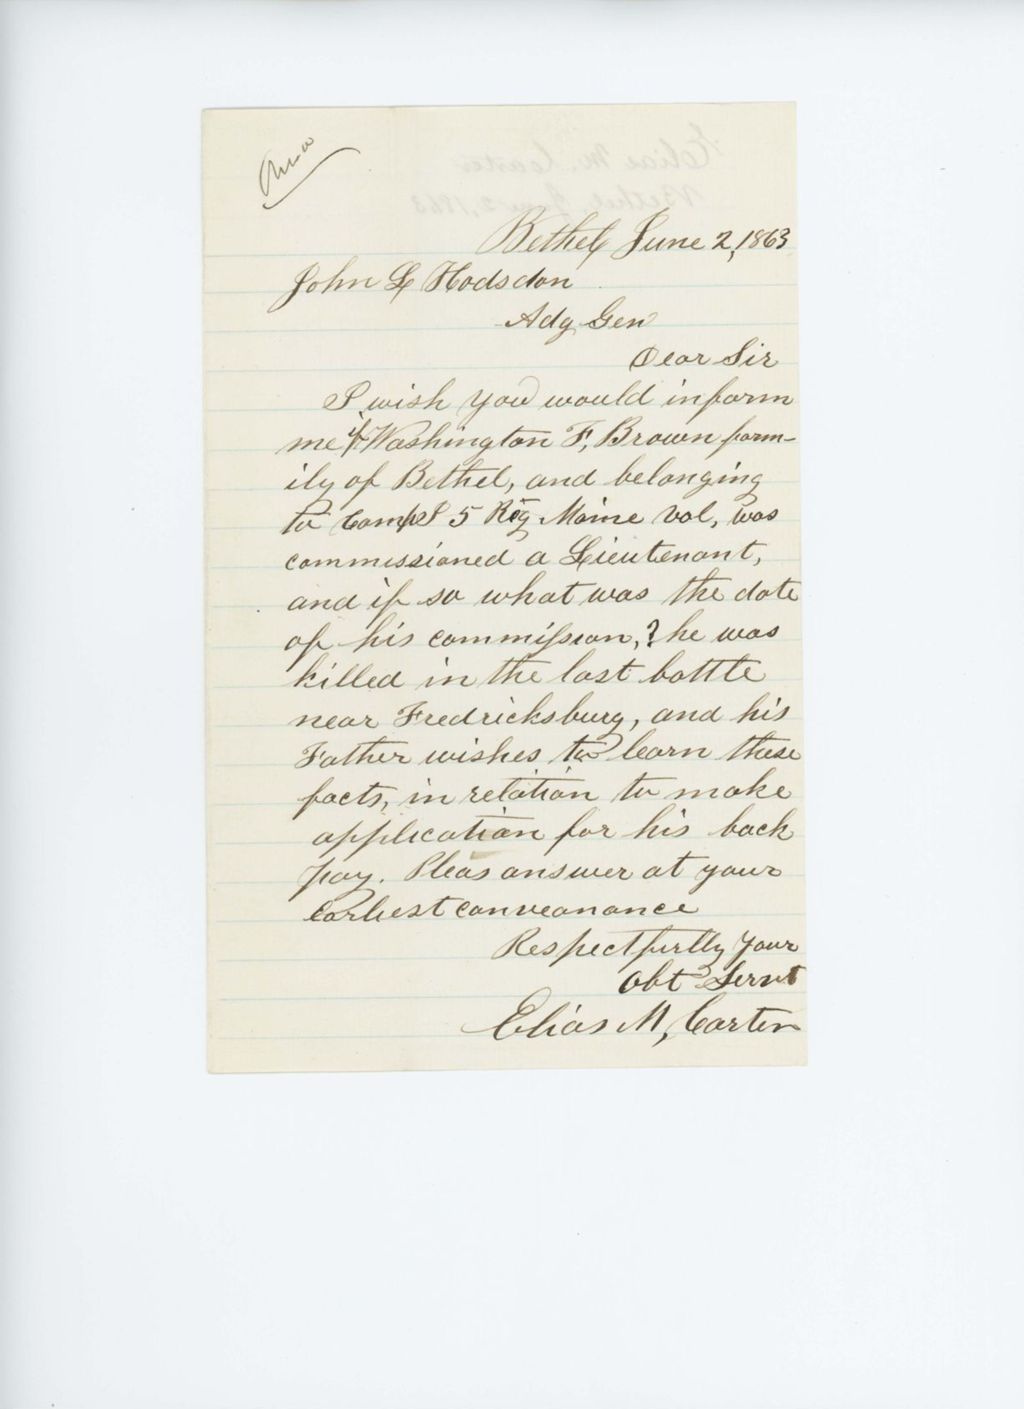 Ans
Bethel June 2, 1863
John L Hodsdon
Adg Gen
Dear Sir
I wish you would inform
me if Washington F, Brown form-
ily of Bethel, and belonging
to Comp I 5 Reg Maine Vol, was
commissioned a Lieutenant,
and if so what was the date
of his commission,? he was
killed in the last battle
near Fredricksburg, and his
Father wishes to learn these
facts, in relation to make
application for his back
pay. Pleas answer at your
earliest conveanance
Respectfully Your
Obt Servt
Elias M, Carter